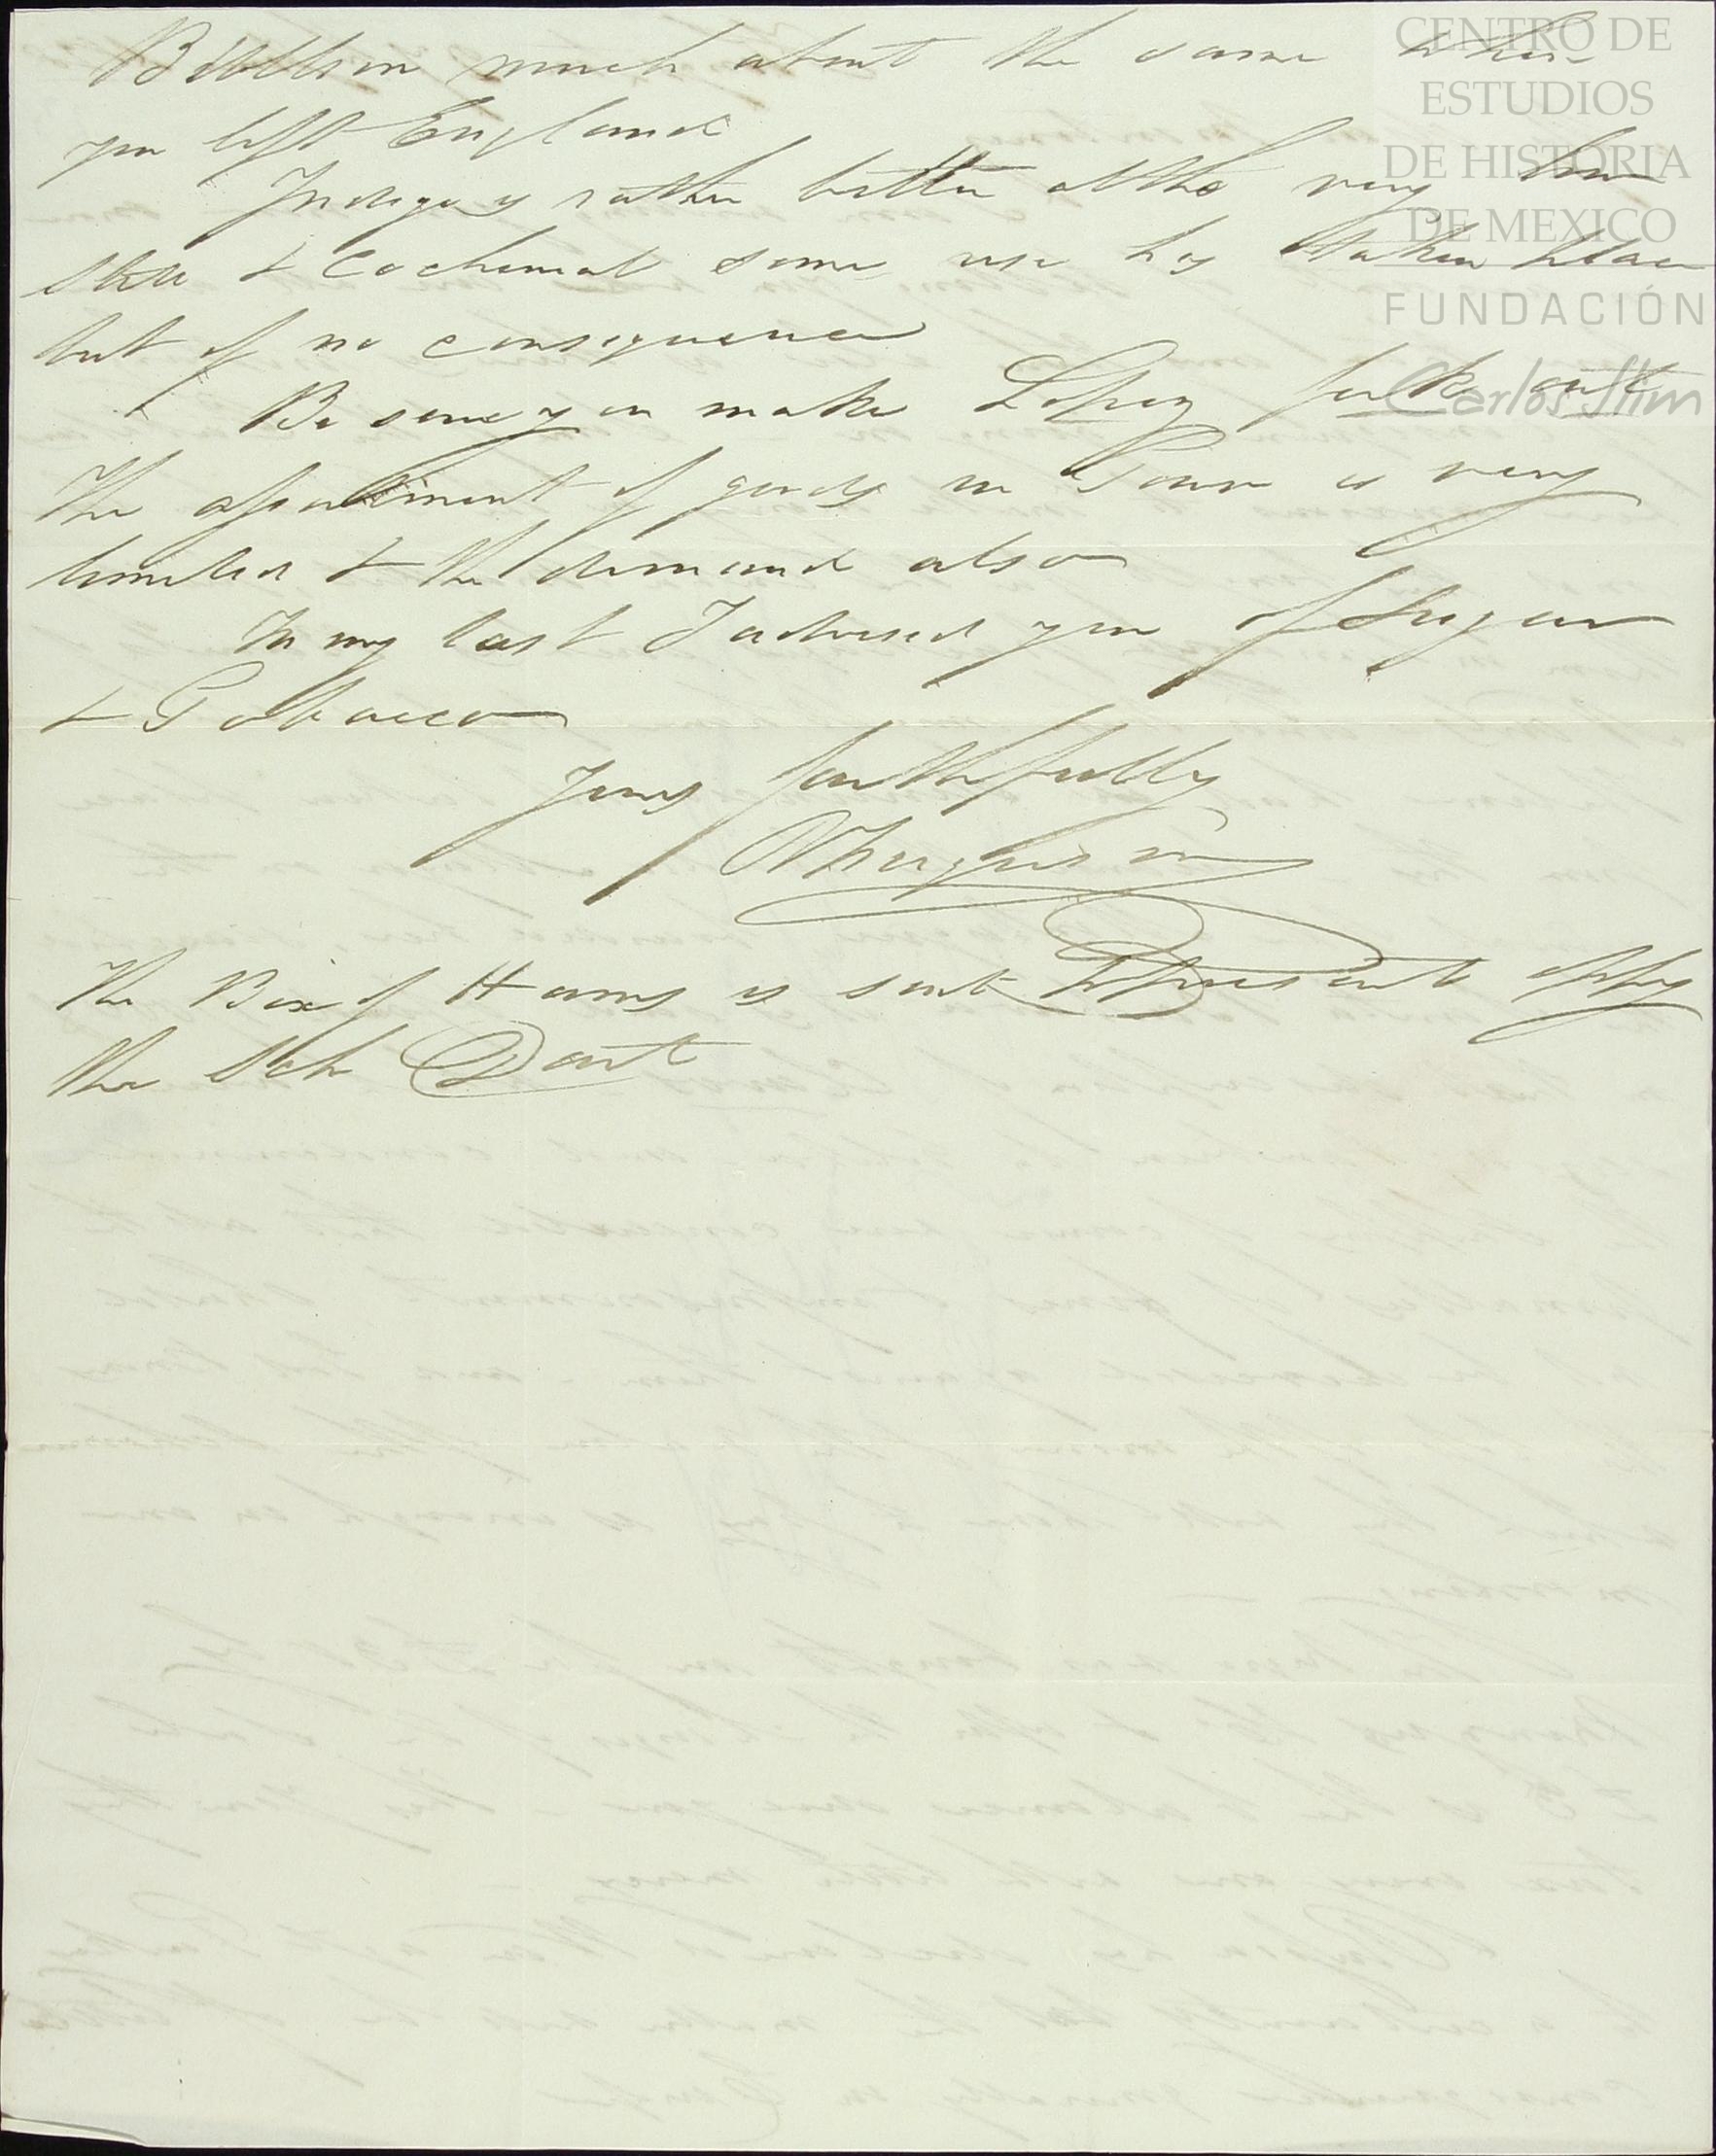 Bullion much about the same when
you left England
Indigo is rather better altho very low
still & Cochineal some rise has taken place
but of no consequence
Be sure you make Lopez fork out
The assortment of goods in Town is very
limited & the demand also
In my last I advised you of Sugar
& Tobacco
Yours faithfully
The Box of Hams is sent
the Sch Dart
CENTRO DE
ESTUDIOS
DE HISTORIA
DE MEXICO
FUNDACIÓN
Carlos Slim